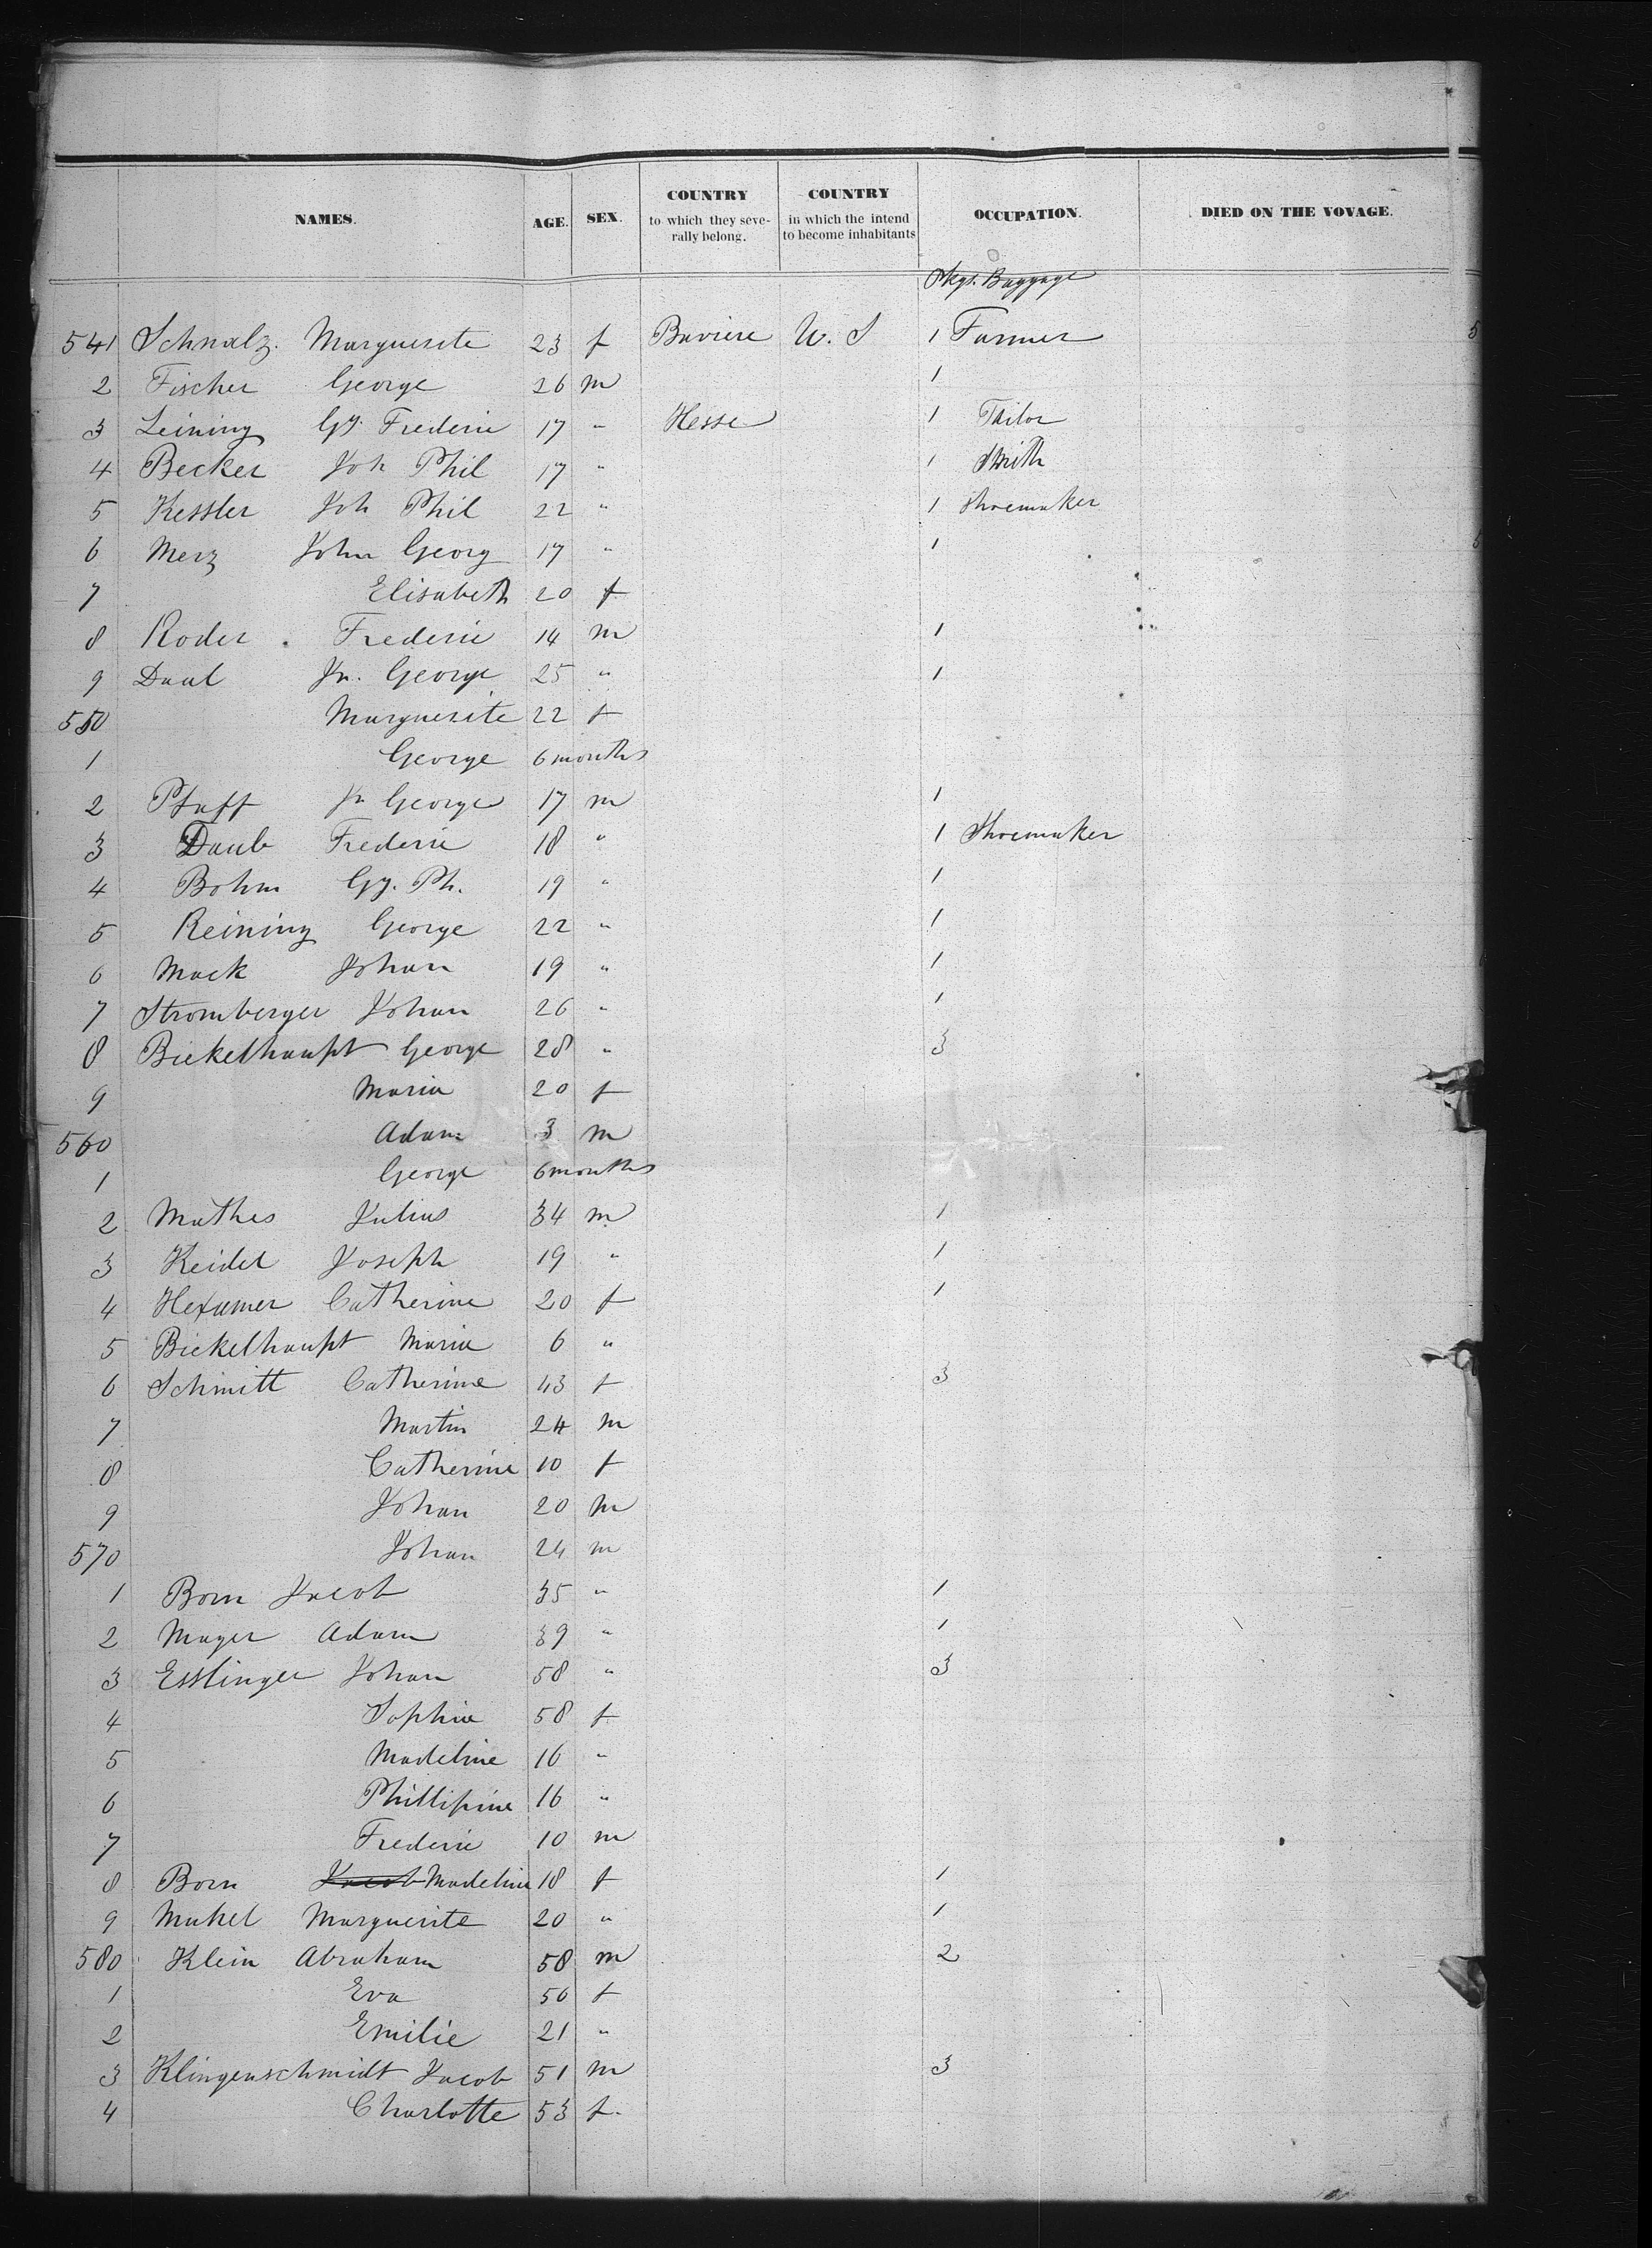 NAMES. AGE. SEX. COUNTRY to which they seve- rally belong. COUNTRY in which the intend to become inhabitants OCCUPATION. DIED ON THE VOYAGE.
Pkgs. Baggage
541 Schnalz. Marguerite 23 f Baviere U. S 1 Farmer
2 Fischer George 26 m 1
3 Leining Gg. Frederic 17 " Hesse 1 Tailor
4 Becker Joh Phil 17 " 1 Smith
5 Kessler Joh Phil 22 " 1 Shoemaker
6 Merz John Georg 17 " 1
7 Elisabeth 20 f
8 Roder Frederic 14 m 1
9 Daul Jn. George 25 " 1
550 Marguerite 22 f
1 George 6 months
2 Pfaff Jn George 17 m 1
3 Daub Frederic 18 " 1 Shoemaker
4 Bohm Gg. Ph. 19 " 1
5 Reining George 22 " 1
6 Mack Johan 19 " 1
7 Stromberger Johan 26 " 1
8 Bickelhaupt George 28 " 3
9 Maria 20 f
560 Adam 3 m
1 George 6 months
2 Mathes Julius 34 m 1
3 Keidel Joseph 19 " 1
4 Hexamer Catherine 20 f 1
5 Bickelhaupt Maria 6 "
6 Schmitt Catherine 43 f 3
7 Martin 24 m
8 Catherine 10 f
9 Johan 20 m
570 Johan 24 m
1 Born Jacob 35 " 1
2 Mayer Adam 39 " 1
3 Esslinger Johan 58 " 3
4 Sophie 58 f
5 Madeline 16 "
6 Phillipine 16 "
7 Frederic 10 m
8 Born Jacob Madeline 18 f 1
9 Mukel Marguerite 20 " 1
580 Klein Abraham 58 m 2
1 Eva 56 f
2 Emilie 21 "
3 Klingenschmidt Jacob 51 m 3
4 Charlotte 53 f.